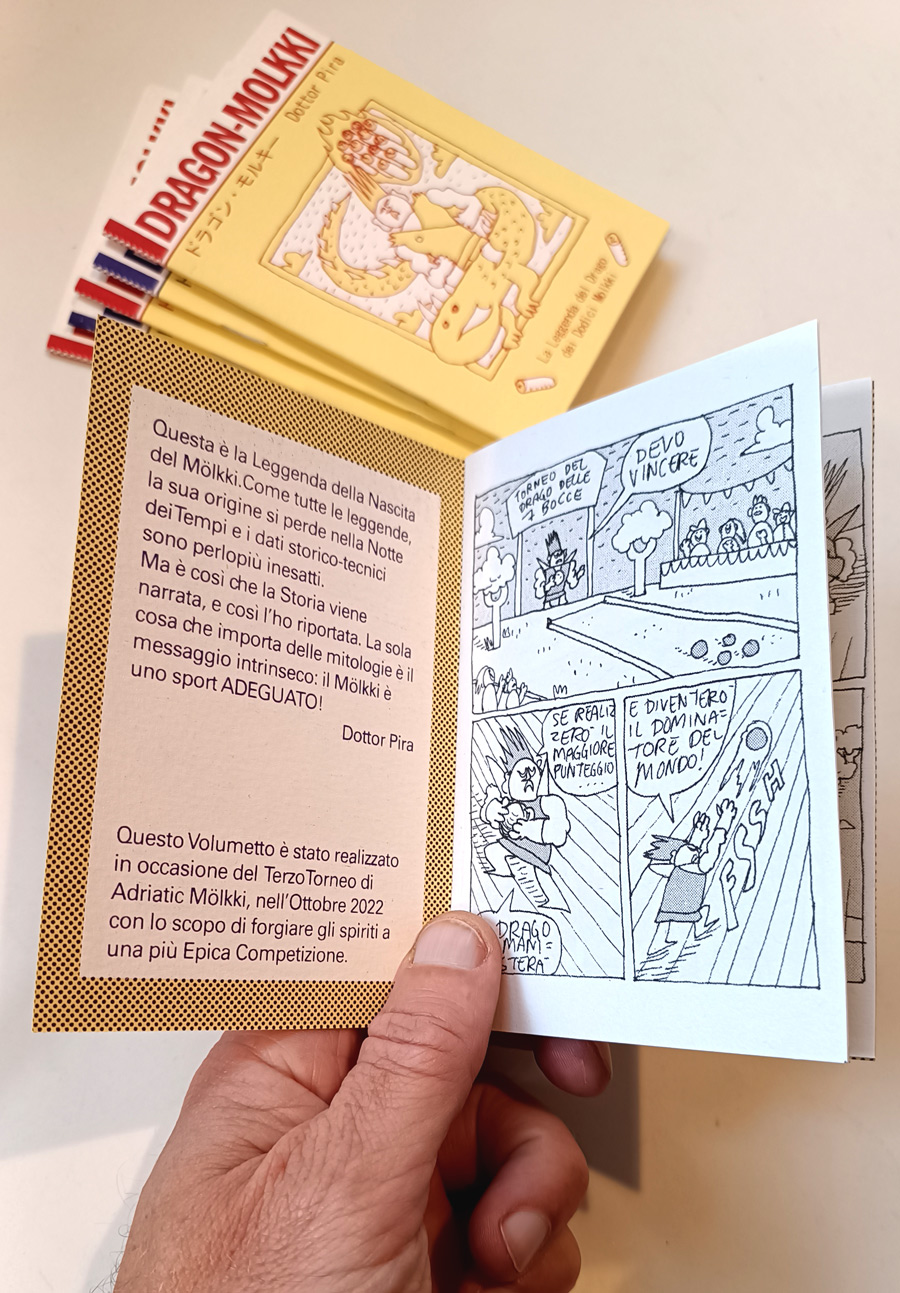 DRAGON-MOLKKI
ドラゴン・モルキー
Dottor Pira
La Leggenda del Drago
dei Dodici Molkki
Questa è la Leggenda della Nascita
del Mölkki.Come tutte le leggende,
la sua origine si perde nella Notte
deiTempi e i dati storico-tecnici
sono perlopiù inesatti.
Ma è così che la Storia viene
narrata, e così l'ho riportata. La sola
cosa che importa delle mitologie è il
messaggio intrinseco: il Mölkki è
uno sport ADEGUATO!
Dottor Pira
Questo Volumetto è stato realizzato
in occasione del TerzoTorneo di
Adriatic Mölkki, nell'Ottobre 2022
con lo scopo di forgiare gli spiriti a
una più Epica Competizione.
TORNEO DEL
DRAGO DELLE
7 BOCCE
DEVO
VINCERE
SE REALIZ
ZERO' IL
MAGGIORE
PUNTEGGIO
DRAGO
MANI=
STERA'
E DIVENTERO'
IL DOMINA=
TORE DEL
MONDO!
FSSSH